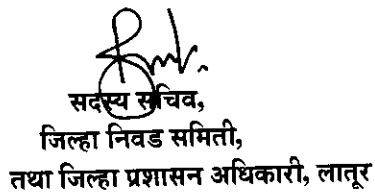 सदस्य सचिव,
जिल्हा निवड समिती,
तथा जिल्हा प्रशासन अधिकारी, लातूर